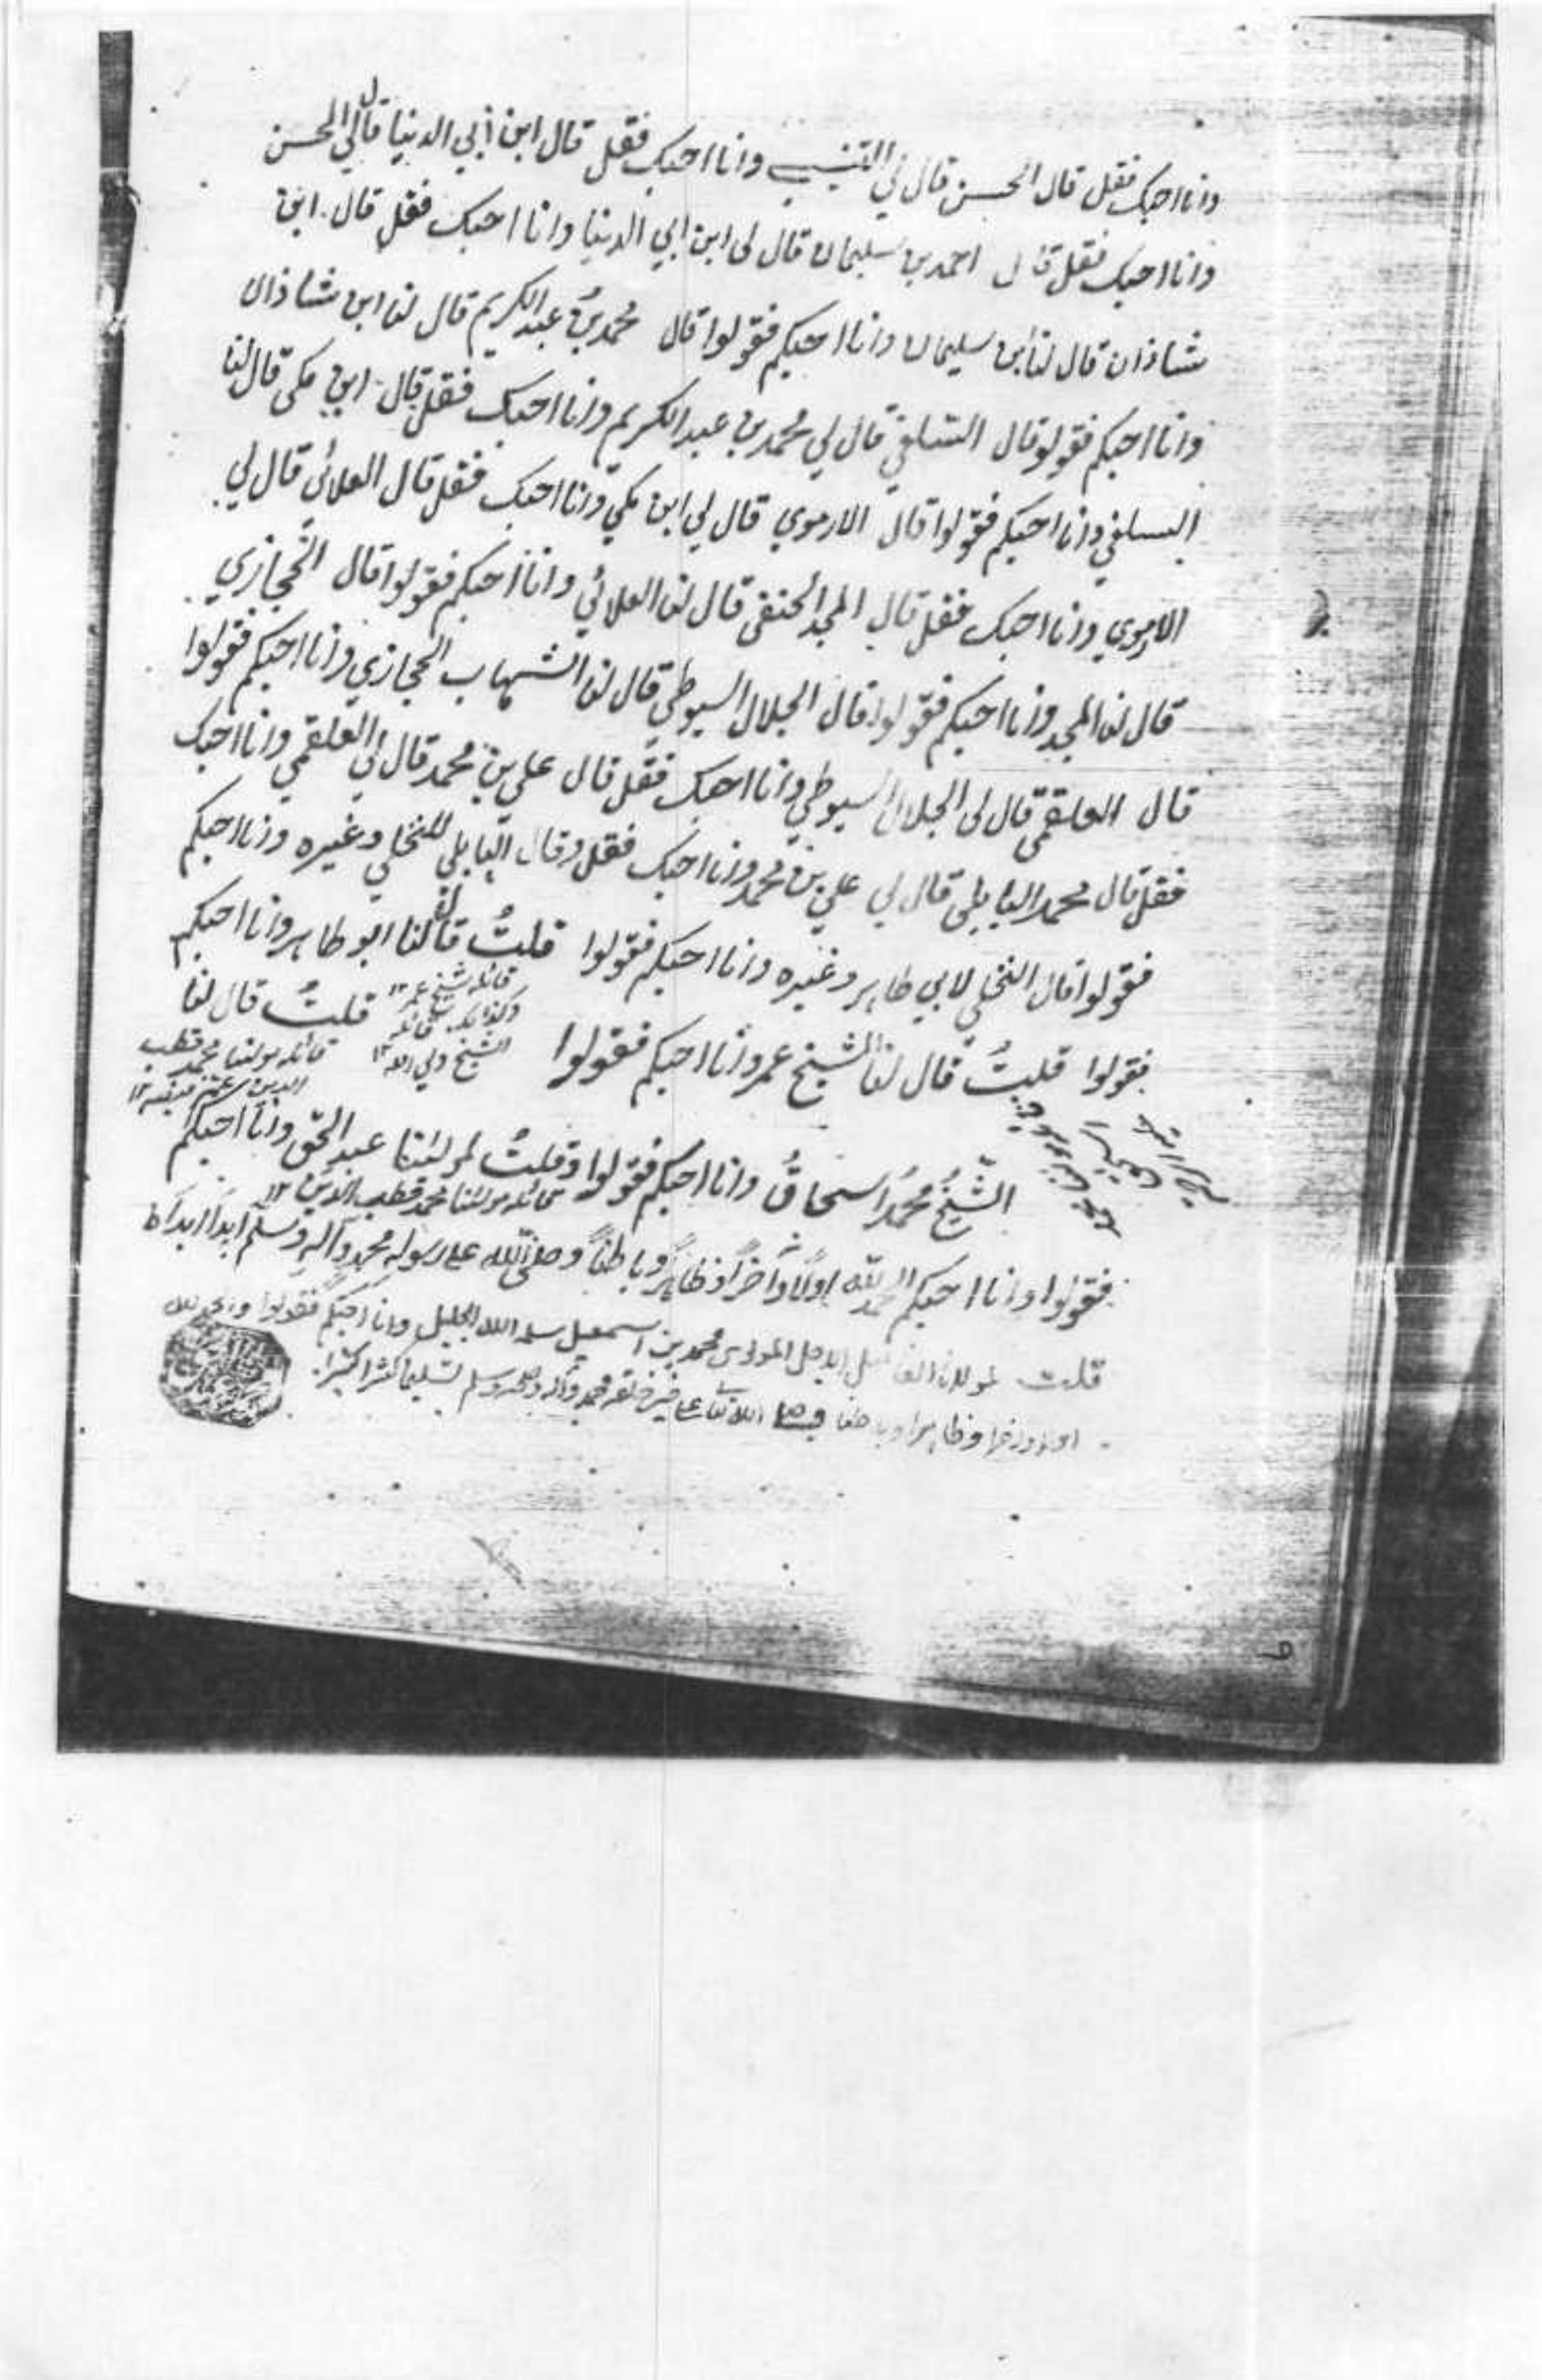 وانا احبك فقل قال الحسن قال لي التنيسي وانا احبك فقل قال ابن ابي الدنيا قال لي الحسن
وانا احبك فقل قال احمد بن سليمان قال لي ابن ابي الدنيا وانا احبك فقل قال ابن
شاذان قال لنا ابن سليمان وانا احبكم فقولوا قال محمد بن عبد الكريم قال لنا ابن شاذان
وانا احبكم فقولو قال السلفي قال لي محمد بن عبد الكريم وانا احبك فقل قال ابن مكى قال لنا
السلفي وانا احبكم فقولوا قال الارموي قال لي ابن مكي وانا احبك فقل قال العلائى قال لي
الارموي وانا احبك فقل قال المجد الحنفى قال لنا العلائي وانا احبكم فقولوا قال الحجازي
قال لنا المجد وانا احبكم فقولوا قال الجلال السيوطي قال لنا الشهاب الحجازي وانا احبكم فقولوا
قال العلقمى قال لى الجلال السيوطي وانا احبك فقل قال علي بن محمد قال لي العلقمي وانا احبك
فقل قال محمد البابلى قال لي علي بن محمد وانا احبك فقل وقال البابلي للنخلي وغيره وانا احبكم
فقولوا قال النخلي لابي طاهر وغيره وانا احبكم فقولوا قلتُ قال لنا ابو طاهر وانا احبكم
قائله شيخ عمر ١٢
قائله الشيخ ولي الله ١٢
فقولوا قلتُ قال لنا الشيخ عمر وانا احبكم فقولوا قلتُ قال لنا
قائله مولنا محمد قطب الدين
الشيخُ محمدُ اسحاقُ وانا احبكم فقولوا وقلتُ لمولنا عبد الحق وانا احبكم
قائله مولنا محمد قطب الدين ١٢
فقولوا وانا احبكم الحمد لله اولاً وآخراً وظاهراً وباطناً وصلى الله على رسوله محمد وآله وسلم ابدا ابدا
قلت لمولانا الفاضل الاجل المولوى محمد بن اسمعيل سلمه الله الجليل وانا احبكم فقولوا والحمد لله
اولا واخرا وظاهرا وباطنا وصلى الله تعالى على خير خلقه محمد وآله وسلم تسليما كثيرا كثيرا